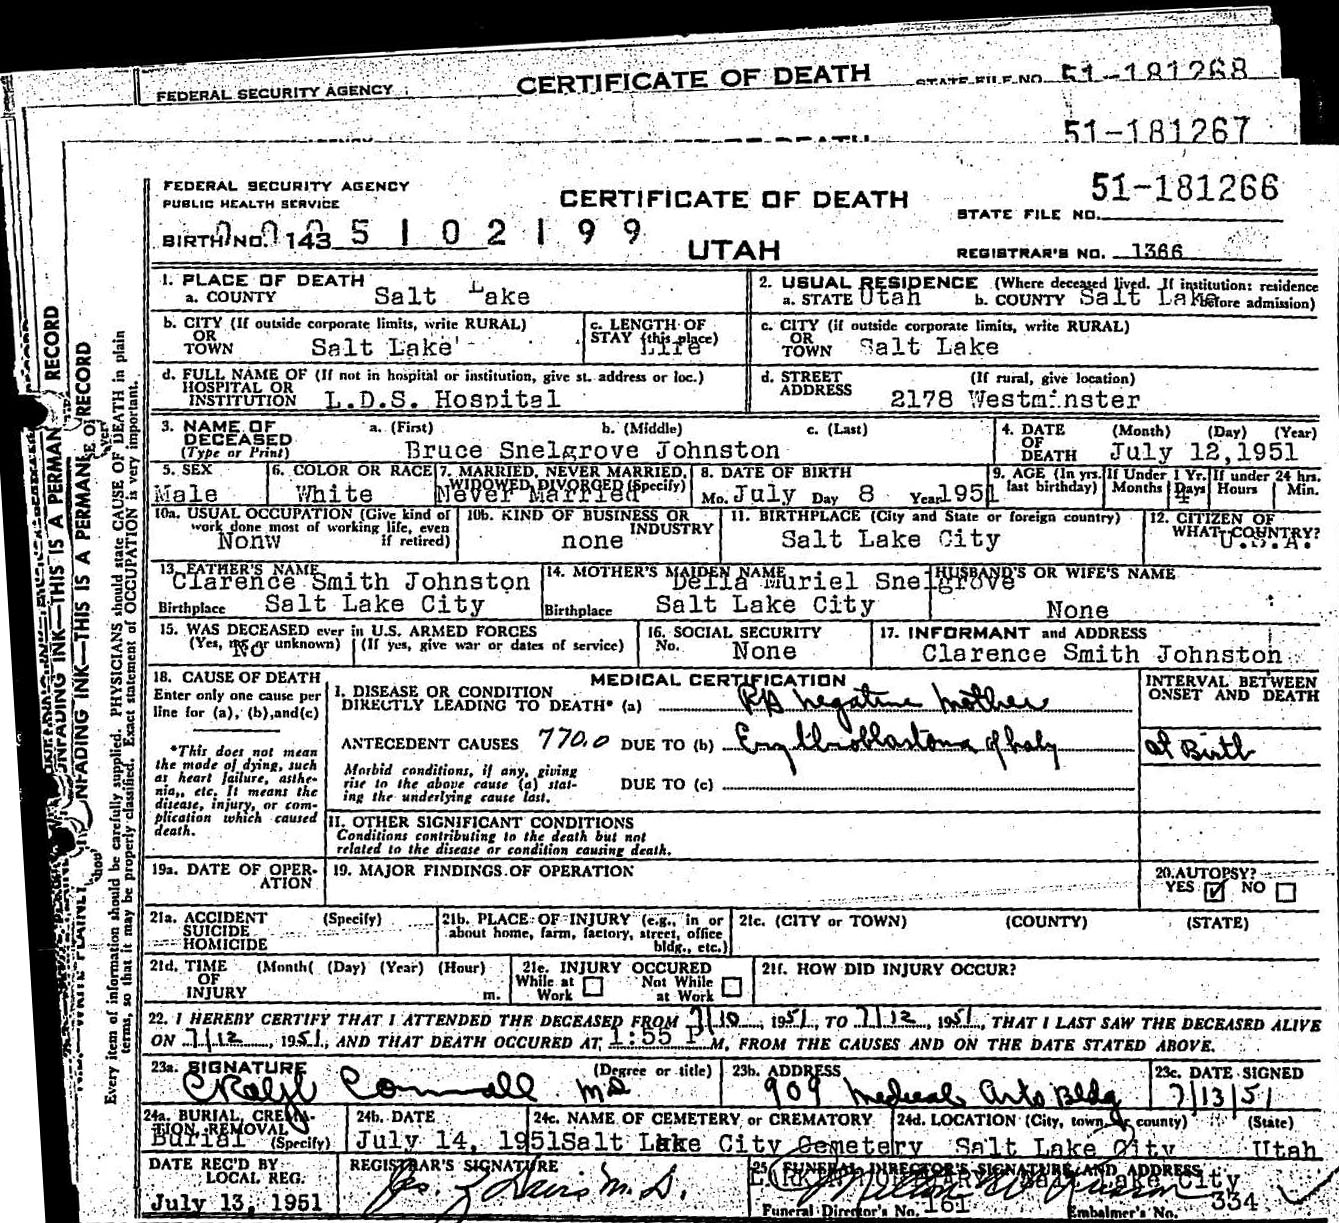 FEDERAL SECURITY AGENCY CERTIFICATE OF DEATH STATE FILE NO. 51-181268
51-181267
FEDERAL SECURITY AGENCY
PUBLIC HEALTH SERVICE
CERTIFICATE OF DEATH
51-181266
STATE FILE NO.
BIRTH NO. 143 5102199
UTAH
REGISTRAR'S NO. 1366
1. PLACE OF DEATH
a. COUNTY Salt Lake
2. USUAL RESIDENCE (Where deceased lived. If institution: residence before admission)
a. STATE Utah b. COUNTY Salt Lake
b. CITY (If outside corporate limits, write RURAL)
OR
TOWN Salt Lake
c. LENGTH OF
STAY (this place)
Life
c. CITY (if outside corporate limits, write RURAL)
OR
TOWN Salt Lake
d. FULL NAME OF (If not in hospital or institution, give st. address or loc.)
HOSPITAL OR
INSTITUTION L.D.S. Hospital
d. STREET (If rural, give location)
ADDRESS 2178 Westminster
3. NAME OF a. (First) b. (Middle) c. (Last)
DECEASED
(Type or Print) Bruce Snelgrove Johnston
4. DATE (Month) (Day) (Year)
OF
DEATH July 12,1951
5. SEX
Male
6. COLOR OR RACE
White
7. MARRIED, NEVER MARRIED,
WIDOWED, DIVORCED (Specify)
Never Married
8. DATE OF BIRTH
Mo. July Day 8 Year 1951
9. AGE (In yrs. last birthday)
If Under 1 Yr. Months Days 4
If under 24 hrs. Hours Min.
10a. USUAL OCCUPATION (Give kind of
work done most of working life, even
if retired)
Nonw
10b. KIND OF BUSINESS OR
INDUSTRY
none
11. BIRTHPLACE (City and State or foreign country)
Salt Lake City
12. CITIZEN OF
WHAT COUNTRY?
U.S.A.
13. FATHER'S NAME
Clarence Smith Johnston
Birthplace Salt Lake City
14. MOTHER'S MAIDEN NAME
Della Muriel Snelgrove
Birthplace Salt Lake City
HUSBAND'S OR WIFE'S NAME
None
15. WAS DECEASED ever in U.S. ARMED FORCES
(Yes, no, or unknown) (If yes, give war or dates of service)
No
16. SOCIAL SECURITY
No. None
17. INFORMANT and ADDRESS
Clarence Smith Johnston
18. CAUSE OF DEATH
Enter only one cause per
line for (a), (b), and (c)
*This does not mean
the mode of dying, such
as heart failure, asthe-
nia,, etc. It means the
disease, injury, or com-
plication which caused
death.
MEDICAL CERTIFICATION
INTERVAL BETWEEN
ONSET AND DEATH
I. DISEASE OR CONDITION
DIRECTLY LEADING TO DEATH* (a) Rh negative mother
ANTECEDENT CAUSES 770.0 DUE TO (b) Erythroblastoma of baby
at Birth
Morbid conditions, if any, giving
rise to the above cause (a) stat-
ing the underlying cause last.
DUE TO (c)
II. OTHER SIGNIFICANT CONDITIONS
Conditions contributing to the death but not
related to the disease or condition causing death.
19a. DATE OF OPER-
ATION
19. MAJOR FINDINGS OF OPERATION
20. AUTOPSY?
YES NO
21a. ACCIDENT (Specify)
SUICIDE
HOMICIDE
21b. PLACE OF INJURY (e.g., in or
about home, farm, factory, street, office
bldg., etc.)
21c. (CITY or TOWN) (COUNTY) (STATE)
21d. TIME (Month( (Day) (Year) (Hour)
OF
INJURY m.
21e. INJURY OCCURED
While at Work Not While at Work
21f. HOW DID INJURY OCCUR?
22. I HEREBY CERTIFY THAT I ATTENDED THE DECEASED FROM 7/10, 1951, TO 7/12, 1951, THAT I LAST SAW THE DECEASED ALIVE
ON 7/12, 1951, AND THAT DEATH OCCURED AT 1:55 P M, FROM THE CAUSES AND ON THE DATE STATED ABOVE.
23a. SIGNATURE (Degree or title)
C Ralph Cornwall MD
23b. ADDRESS
909 Medical Arts Bldg
23c. DATE SIGNED
7/13/51
24a. BURIAL, CREMA-
TION, REMOVAL
(Specify)
Burial
24b. DATE
July 14, 1951
24c. NAME OF CEMETERY or CREMATORY
Salt Lake City Cemetery
24d. LOCATION (City, town, or county) (State)
Salt Lake City Utah
DATE REC'D BY
LOCAL REG.
July 13, 1951
REGISTRAR'S SIGNATURE
25. FUNERAL DIRECTOR'S SIGNATURE AND ADDRESS
Salt Lake City
Funeral Director's No. 161 Embalmer's No. 334
Every item of information should be carefully supplied. PHYSICIANS should state CAUSE OF DEATH in plain
terms, so that it may be properly classified. Exact statement of OCCUPATION is very important.
UNFADING INK—THIS IS A PERMANENT RECORD